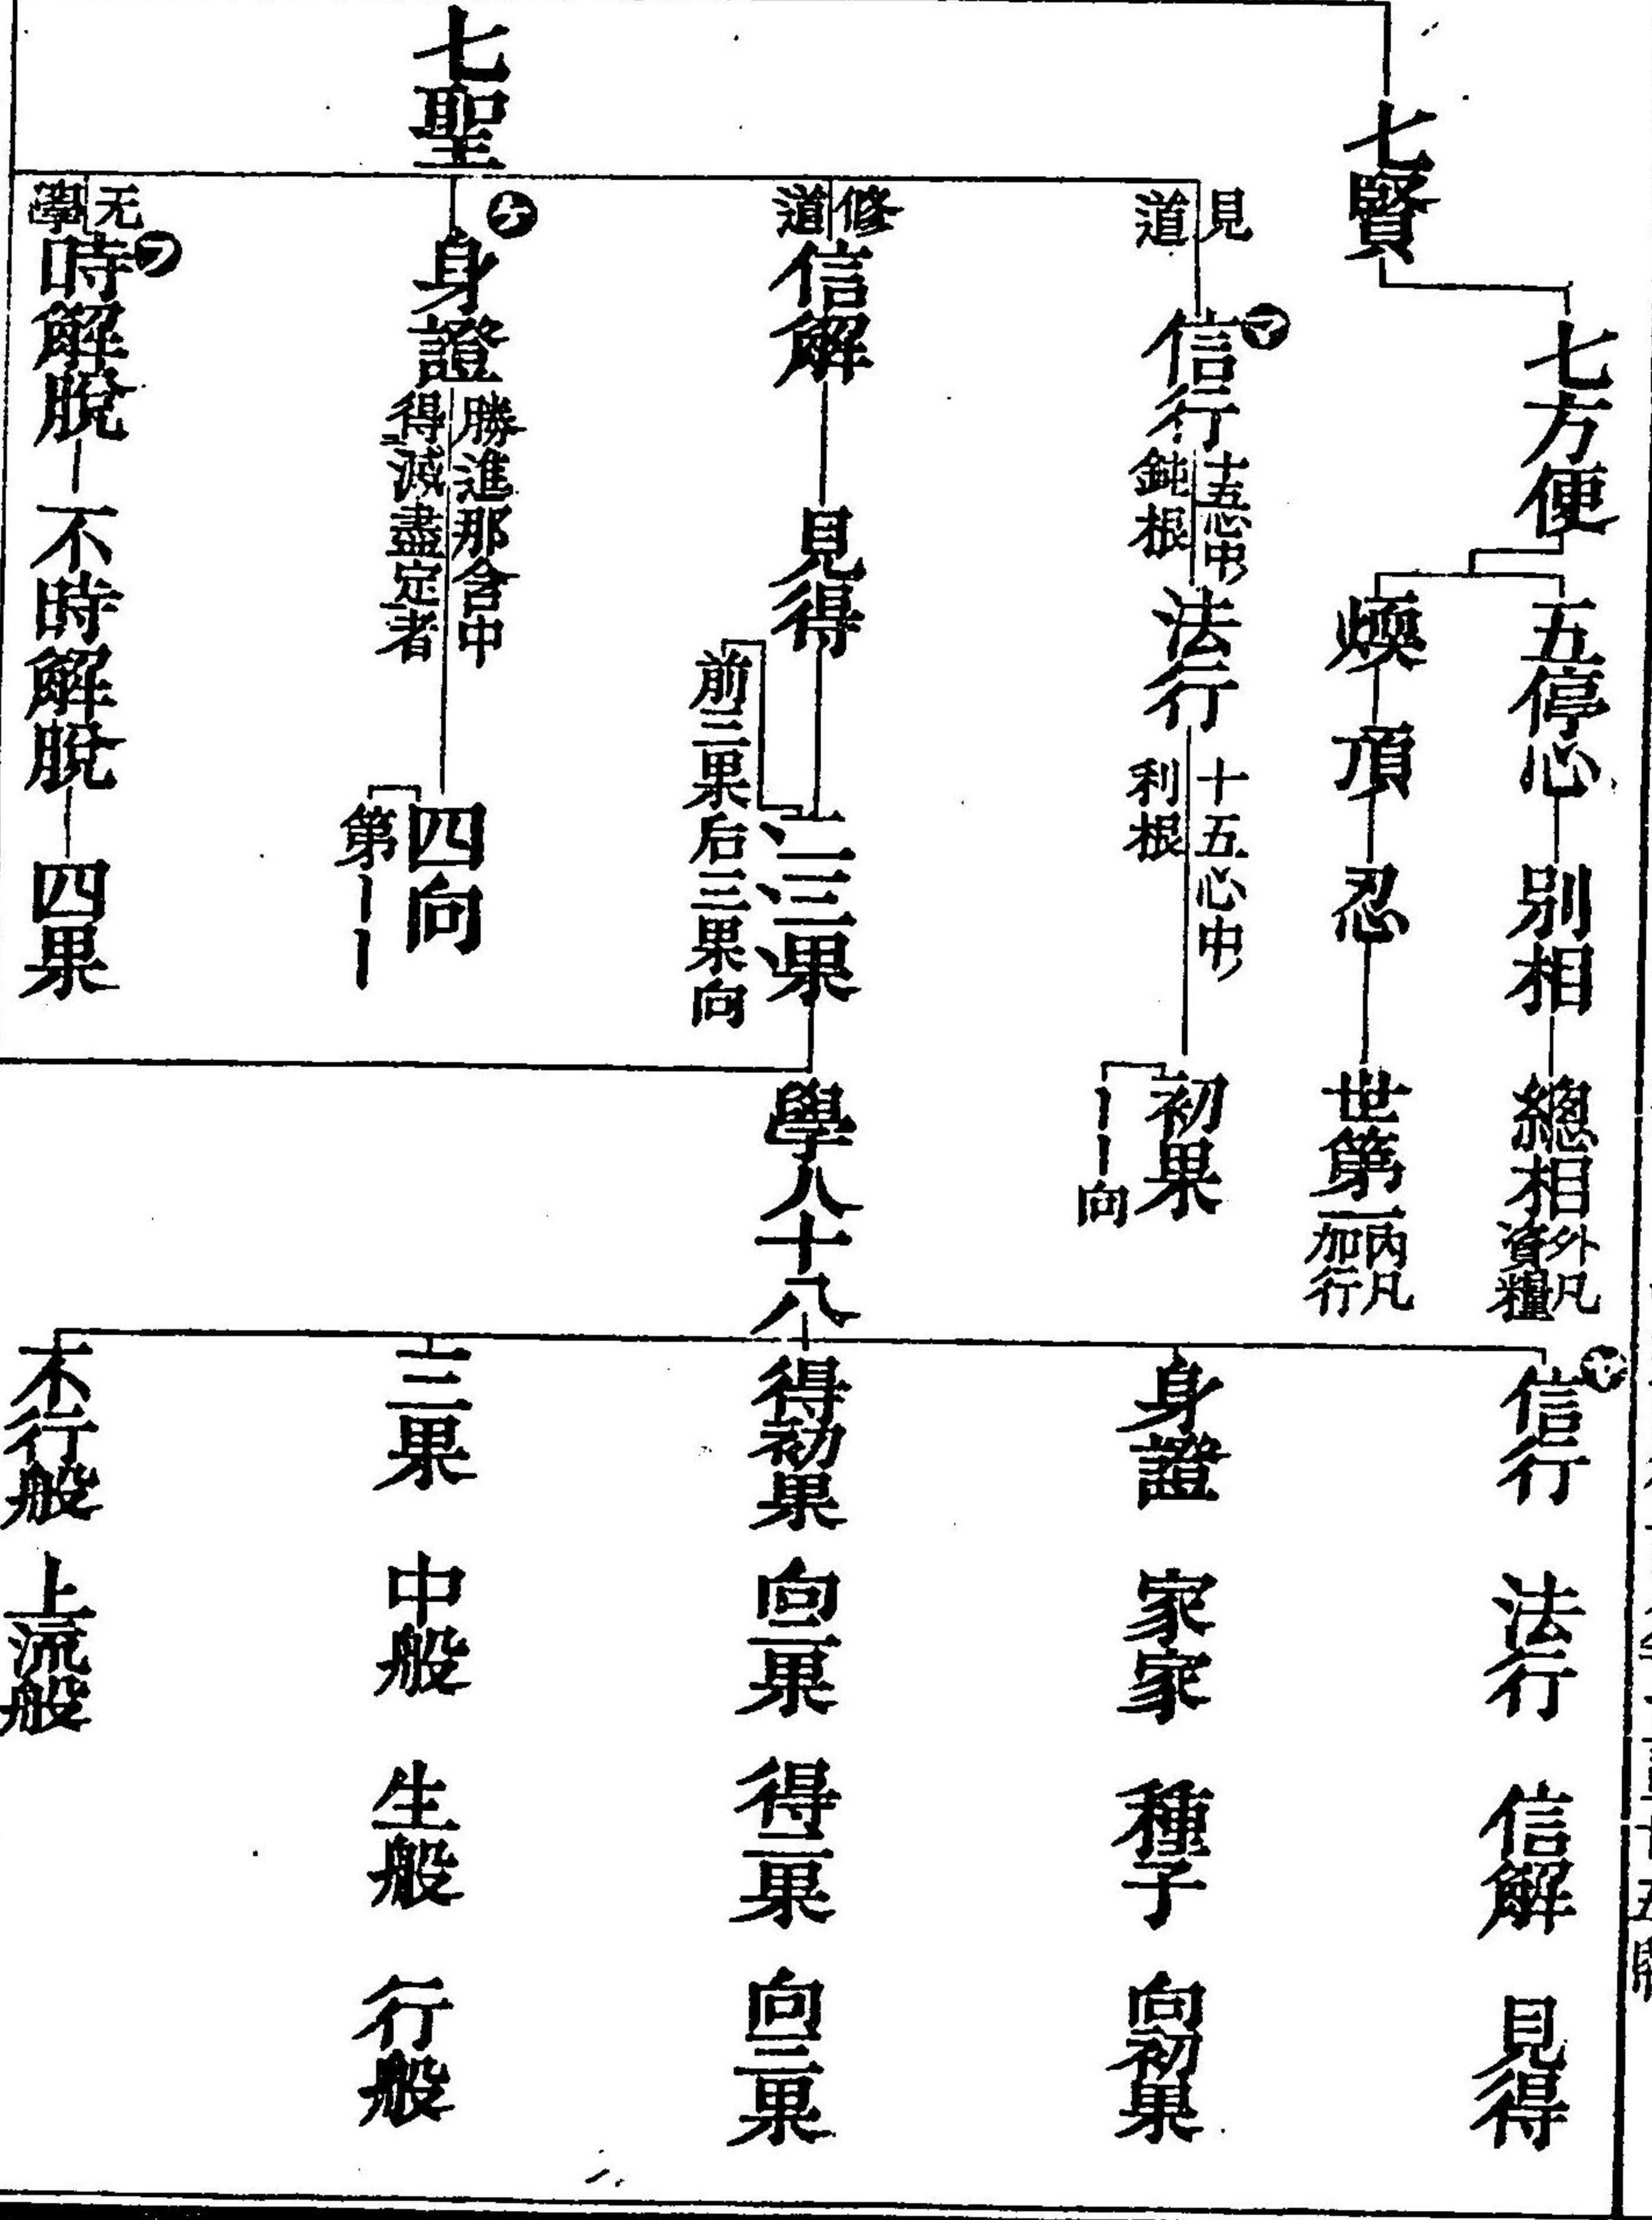 七賢
七方便
五停心
別相
總相
外凡
資糧
煗
頂
忍
世第一
內凡
加行
七聖
見道
㋮
信行
十五心中
鈍根
法行
十五心中
利根
初果
〡〡向
修道
信解
見得
二三果
前三果后三果向
㋬
身證
勝進那含中
得滅盡定者
四向
第〡〡
无學
㋫
時解脫
不時解脫
四果
學八十八
信行 法行 信解 見得
身證 家家 種子 向初果
得初果 向二果 得二果 向三果
三果 中般 生般 行般
不行般 上流般